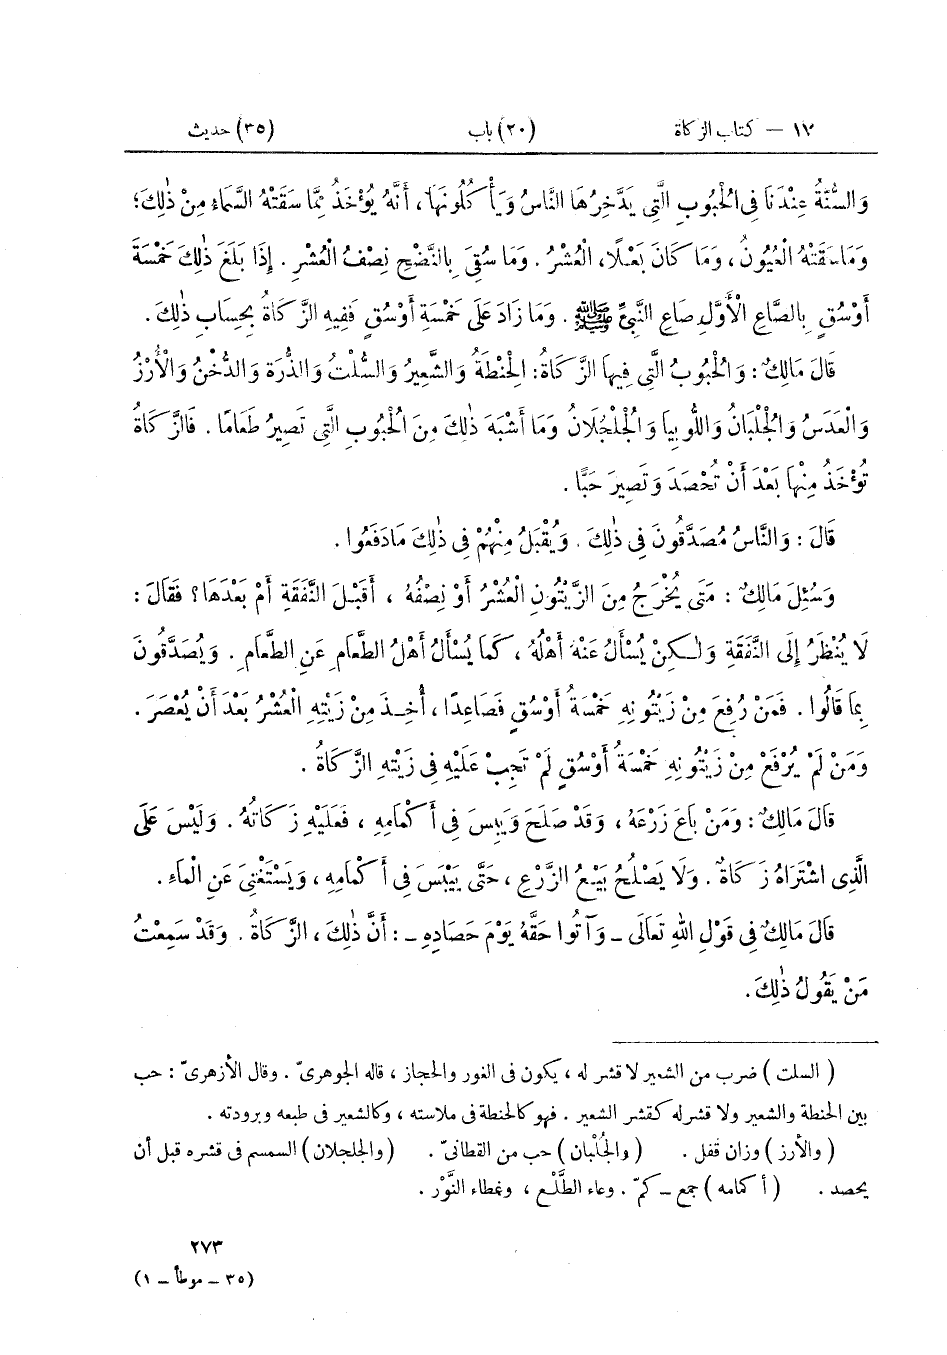 ١٧ — كتاب الزكاة (٢٠) باب (٣٥) حديث
وَالسُّنَّةُ عِنْدَنَا فِى الْحُبُوبِ الَّتِى يَدَّخِرُهَا النَّاسُ وَيَأْكُلُونَهَا، أَنَّهُ يُؤْخَذُ مِمَّا سَقَتْهُ السَّمَاءِ مِنْ ذٰلِكَ؛
وَمَا سَقَتْهُ الْعُيُونُ، وَمَا كَانَ بَعْلًا، الْعُشْرُ. وَمَا سُقِىَ بِالنَّضْحِ نِصْفُ الْعُشْرِ. إِذَا بَلَغَ ذٰلِكَ خَمْسَةَ
أَوْسُقٍ بِالصَّاعِ الْأَوَّلِ صَاعِ النَّبِىِّ ﷺ. وَمَا زَادَ عَلَى خَمْسَةِ أَوْسُقٍ فَفِيهِ الزَّكَاةُ بِحِسَابِ ذٰلِكَ.
قَالَ مَالِكٌ: وَالْحُبُوبُ الَّتِى فِيهَا الزَّكَاةُ: الْحِنْطَةُ وَالشَّعِيرُ وَالسُّلْتُ وَالذُّرَةُ وَالدُّخْنُ وَالْأُرْزُ
وَالْعَدَسُ وَالْجُلْبَانُ وَاللُّوبِيا وَالْجُلْجُلَانُ وَمَا أَشْبَهَ ذٰلِكَ مِنَ الْحُبُوبِ الَّتِى تَصِيرُ طَعَامًا. فَالزَّكَاةُ
تُؤْخَذُ مِنْهَا بَعْدَ أَنْ تُحْصَدَ وَتَصِيرَ حَبًّا.
قَالَ: وَالنَّاسُ مُصَدَّقُونَ فِى ذٰلِكَ. وَيُقْبَلُ مِنْهُمْ فِى ذٰلِكَ مَادَفَعُوا.
وَسُئِلَ مَالِكٌ: مَتَى يُخْرَجُ مِنَ الزَّيْتُونِ الْعُشْرُ أَوْ نِصْفُهُ، أَقَبْلَ النَّفَقَةِ أَمْ بَعْدَهَا؟ فَقَالَ:
لَا يُنْظَرُ إِلَى النَّفَقَةِ وَلٰكِنْ يُسْأَلُ عَنْهُ أَهْلُهُ، كَمَا يُسْأَلُ أَهْلُ الطَّعَامِ عَنِ الطَّعَامِ. وَيُصَدَّقُونَ
بِمَا قَالُوا. فَمَنْ رُفِعَ مِنْ زَيْتُونِهِ خَمْسَةُ أَوْسُقٍ فَصَاعِدًا، أُخِذَ مِنْ زَيْتِهِ الْعُشْرُ بَعْدَ أَنْ يُعْصَرَ.
وَمَنْ لَمْ يُرْفَعْ مِنْ زَيْتُونِهِ خَمْسَةُ أَوْسُقٍ لَمْ تَجِبْ عَلَيْهِ فِى زَيْتِهِ الزَّكَاةُ.
قَالَ مَالِكٌ: وَمَنْ بَاعَ زَرْعَهُ، وَقَدْ صَلَحَ وَيَبِسَ فِى أَكْمَامِهِ، فَعَلَيْهِ زَكَاتُهُ. وَلَيْسَ عَلَى
الَّذِى اشْتَرَاهُ زَكَاةٌ. وَلَا يَصْلُحُ بَيْعُ الزَّرْعِ، حَتَّى يَيْبَسَ فِى أَكْمَامِهِ، وَيَسْتَغْنِىَ عَنِ الْمَاءِ.
قَالَ مَالِكٌ فِى قَوْلِ اللهِ تَعَالَى ــ وَآتُوا حَقَّهُ يَوْمَ حَصَادِهِ ــ: أَنَّ ذٰلِكَ، الزَّكَاةُ. وَقَدْ سَمِعْتُ
مَنْ يَقُولُ ذٰلِكَ.
(السلت) ضرب من الشعير لا قشر له، يكون فى الغور والحجاز، قاله الجوهرىّ. وقال الأزهرىّ: حب
بين الحنطة والشعير ولا قشرله كقشر الشعير. فهو كالحنطة فى ملاسته، وكالشعير فى طبعه وبرودته.
(والأرز) وزان قفل. (والجُلْبان) حب من القطانىّ. (والجلجلان) السمسم فى قشره قبل أن
يحصد. (أكمامه) جمع ــ كمّ. وعاء الطَّلْع، وغطاء النَّوْر.
٢٧٣
(٣٥ ــ موطأ ــ ١)